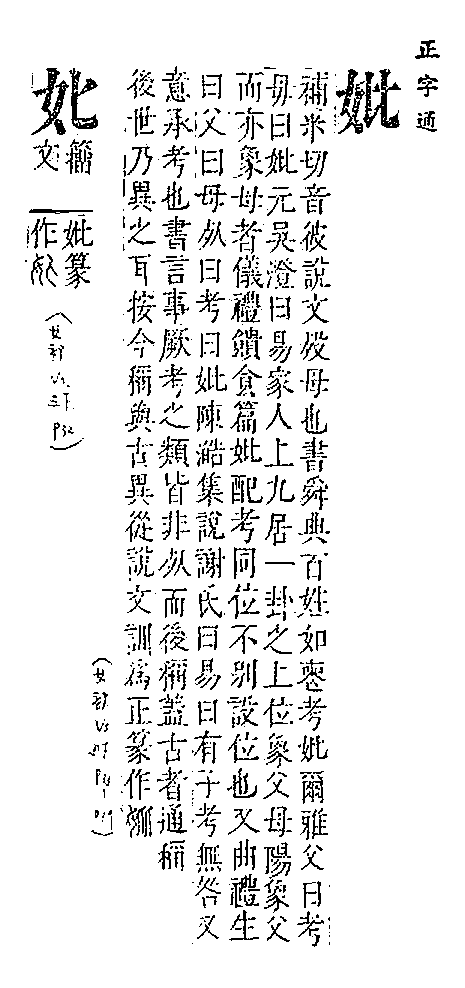 正字通
妣
補米切音彼說文歿母也書舜典百姓如喪考妣爾雅父曰考
母曰妣元吳澄曰易家人上九居一卦之上位象父母陽象父
而亦象母者儀禮饋食篇妣配考同位不別設位也又曲禮生
曰父曰母死曰考曰妣陳澔集說謝氏曰易曰有子考無咎又
意承考也書言事厥考之類皆非死而後稱蓋古者通稱
後世乃異之耳按今稱與古異從說文訓為正篆作
(女部
𡚧
籒文
妣篆
作
(女部
P32)